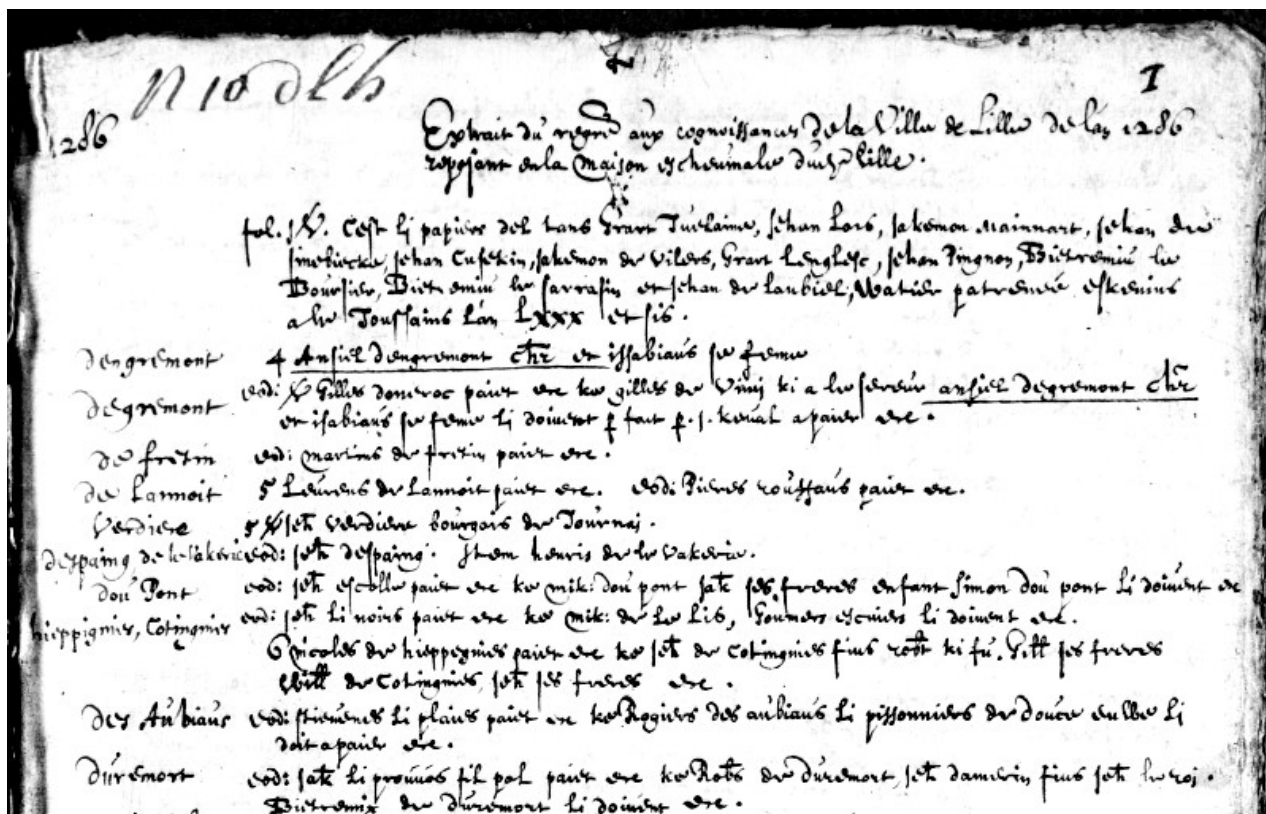 1286
I
Extrait du regre aux cognoissances de la Ville de Lille de l'an 1286
reposant en la maison eschevinale dud. lille.
fol. Cest li papiers del tans Grart Tuelaine, Jehan Lois, Jakemon Mainnart, Jehan de
simebiecke, Jehan Cusekin, Jakemon de Vilers, Grart Lenglesc, Jehan Pingnon, Bietremiu le
Boursier, Bietremiu le sarrasin et Jehan de laubiel, Watier patrenée eskevins
a le Toussains lan LXXX et sis.
Dengremont 4 Ansiel Dengremont chr et issabiaus se feme
Degremont eod: Gilles domeroc paiet etc ke gilles de Vimi ki a le sereur ansiel degremont chr
et isabiaus se feme li doivent p fait p. j. keval a paier etc.
de fretin eod: martins de fretin paiet etc.
de Lannoit 5 Leurens de Lannoit paiet etc. eod: Pieres roussaus paiet etc.
Verdiere 5 Jeh Verdiere bourgois de Tournai.
despaing, de le Vakerie eod: Jeh despaing. Item henris de le Vakerie.
dou Pont eod: Jeh escolle paiet etc ke mik: dou pont Jak ses freres enfant Simon dou pont li doivent etc
hieppignies, Cotingnies eod: Jeh li noirs paiet etc ke mik: de Le Lis, Goumers escuiers li doivent etc.
6 nicoles de hieppegnies paiet etc ke Jeh de Cotingnies fius robt ki fu. Gill ses freres
Will de Cotingnies, Jeh ses freres etc.
des Aubiaus eod: stievenes li plaies paiet etc ke Rogiers des aubiaus li pissonniers de douce euwe li
doit a paier etc.
duremort eod: Jak li prouvos fil pol paiet etc ke Robs de duremort, Jeh damerin fius Jeh le roi.
Bietremix de duremort li doivent etc.